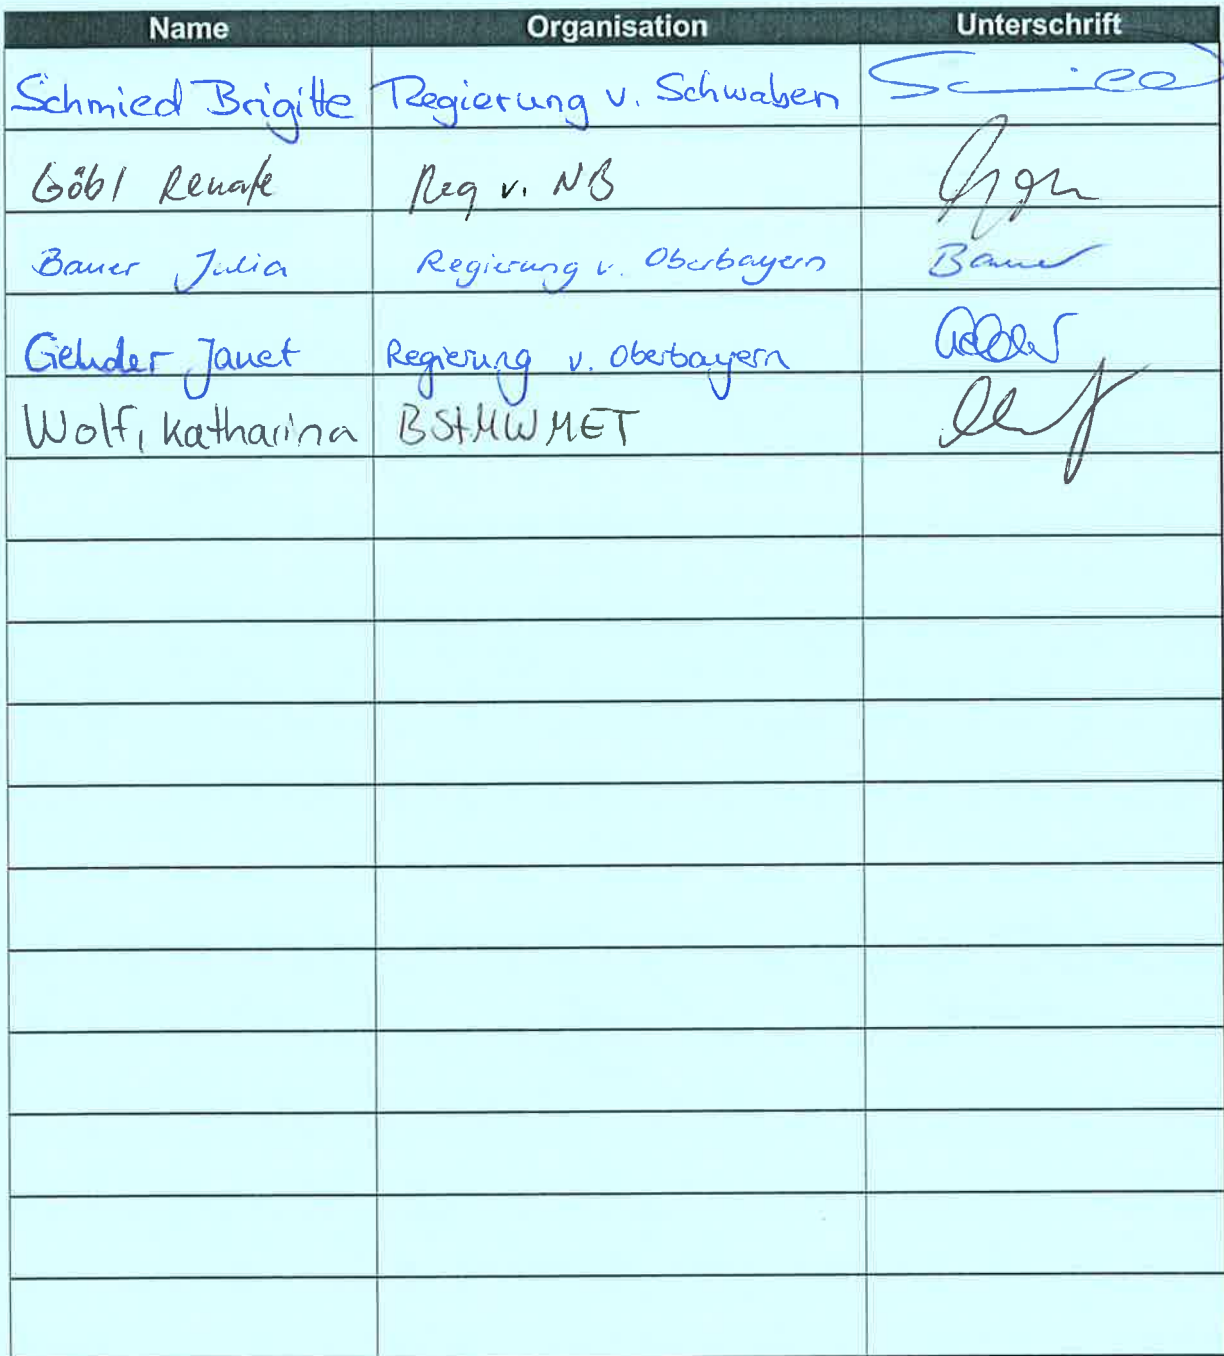 Name Organisation Unterschrift
Schmied Brigitte Regierung v. Schwaben
Göbl Renate Reg v. NB
Bauer Julia Regierung v. Oberbayern Bauer
Janet Regierung v. Oberbayern
Wolf, Katharina BStMWMET